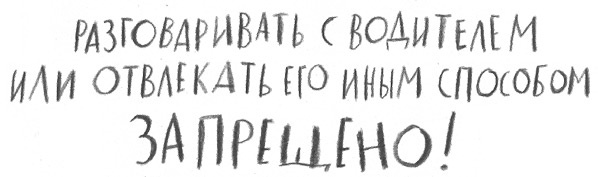 РАЗГОВАРИВАТЬ С ВОДИТЕЛЕМ
ИЛИ ОТВЛЕКАТЬ ЕГО ИНЫМ СПОСОБОМ
ЗАПРЕЩЕНО!